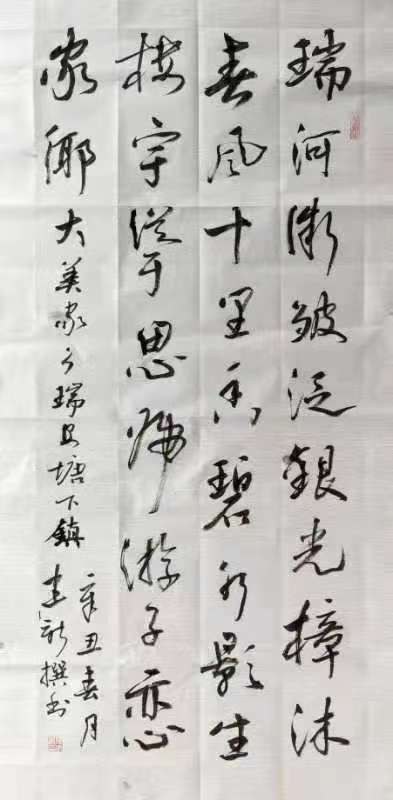 瑞河微皱泛銀光樟沐
春风十里香碧水影生
楼宇耸思归游子恋
家鄉大美家乡瑞安塘下鎮
辛丑春月
建新撰书